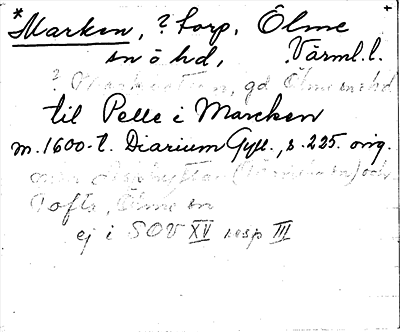 *Marken, ? torp, Ölme +
sn o hd, Värml. l.
? gd Ölme sn o hd
til Pelle i Marcken
m. 1600-t. Diarium Gyll., s. 225. orig.
och
Tofta, Ölme sn
ej i SOV XV resp III